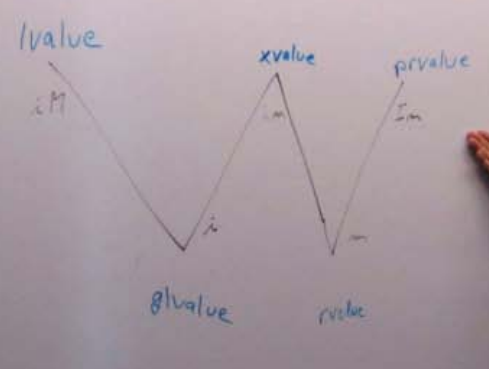 lvalue
xvalue
prvalue
iM
im
Im
i
m
glvalue
rvalue